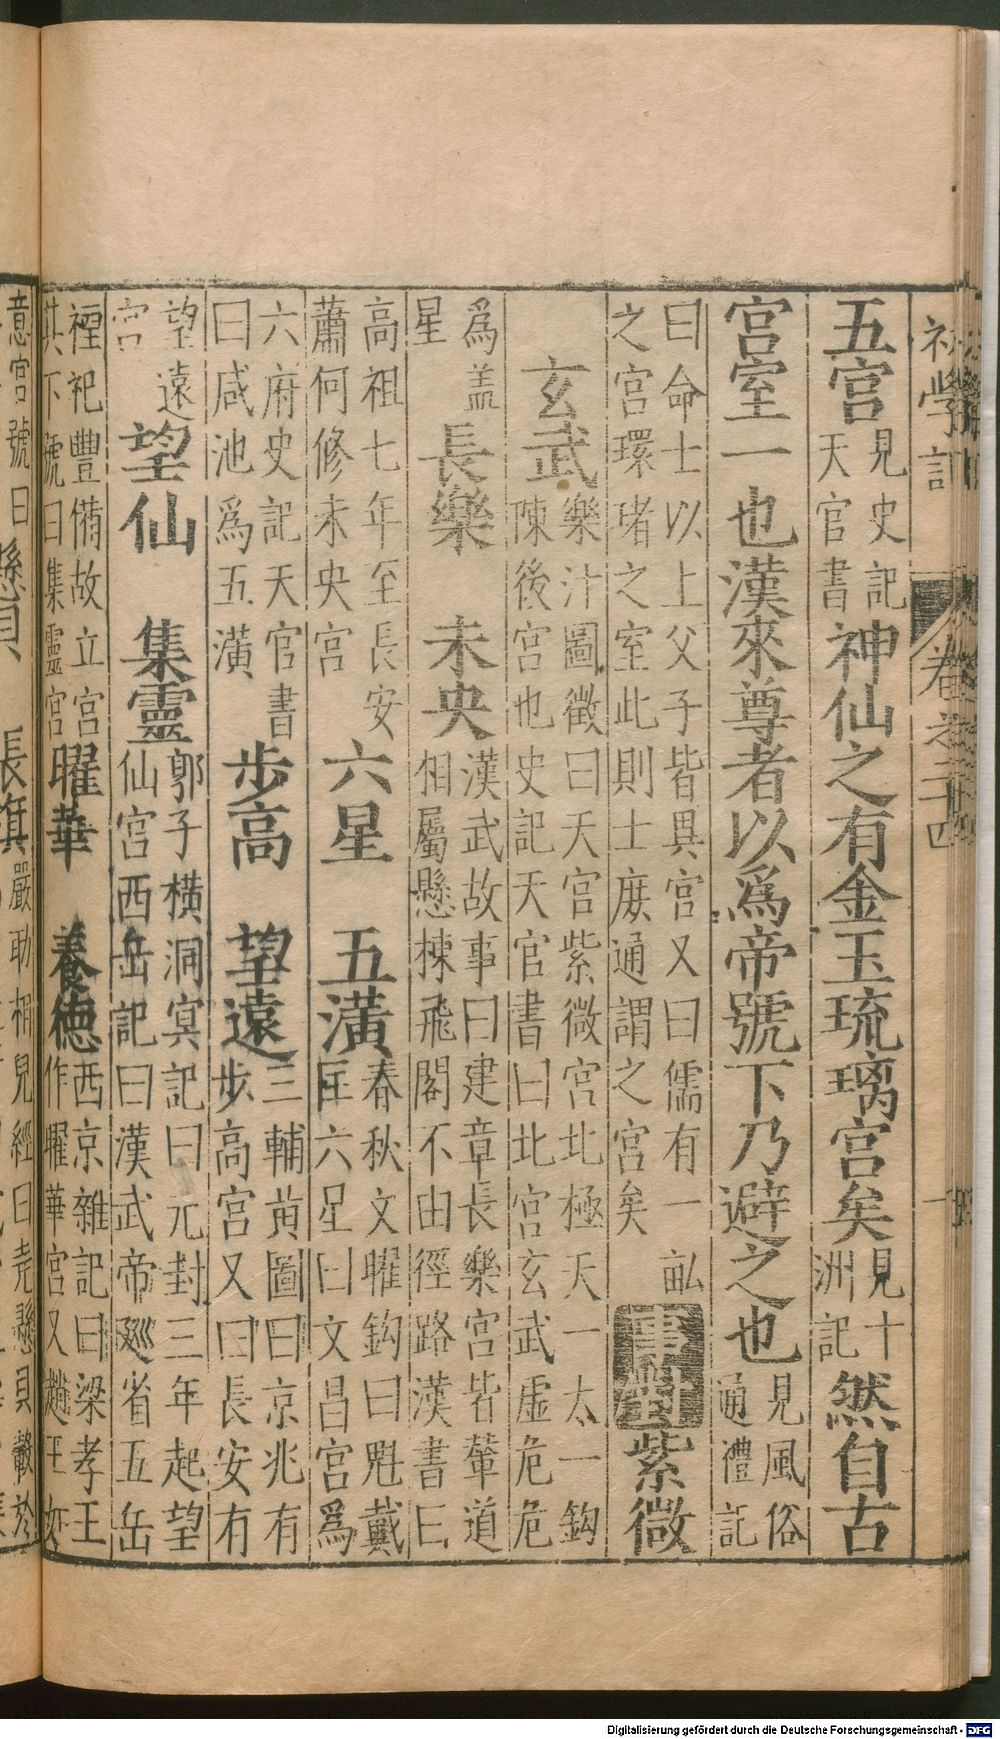 初學記 卷之二十四 一
五宮見史記天官書神仙之有金玉琉璃宮矣見十洲記然自古
宮室一也漢來尊者以爲帝號下乃避之也見風俗通禮記
曰命士以上父子皆異宮又曰儒有一畝之宮環堵之室此則士庶通謂之宮矣 事對 紫微
玄武樂汁圖徵曰天宮紫微宮北極天一太一鈎陳後宮也史記天官書曰北宮玄武虛危危
爲蓋星 長樂 未央漢武故事曰建章長樂宮皆輦道相屬懸棟飛閣不由徑路漢書曰
高祖七年至長安蕭何修未央宮 六星 五潢春秋文曜鈎曰魁戴匡六星曰文昌宮爲
六府史記天官書曰咸池爲五潢 步高 望遠三輔黃圖曰京兆有步高宮又曰長安有
望遠宮 望仙 集靈郭子橫洞冥記曰元封三年起望仙宮西岳記曰漢武帝廵省五岳
禋祀豐備故立宮其下號曰集靈宮 曜華 養德西京雜記曰梁孝王作曜華宮又趙王如
意宮號曰 懸貝 長旗嚴助相兒經曰堯懸貝戰於
Digitalisierung gefördert durch die Deutsche Forschungsgemeinschaft - DFG